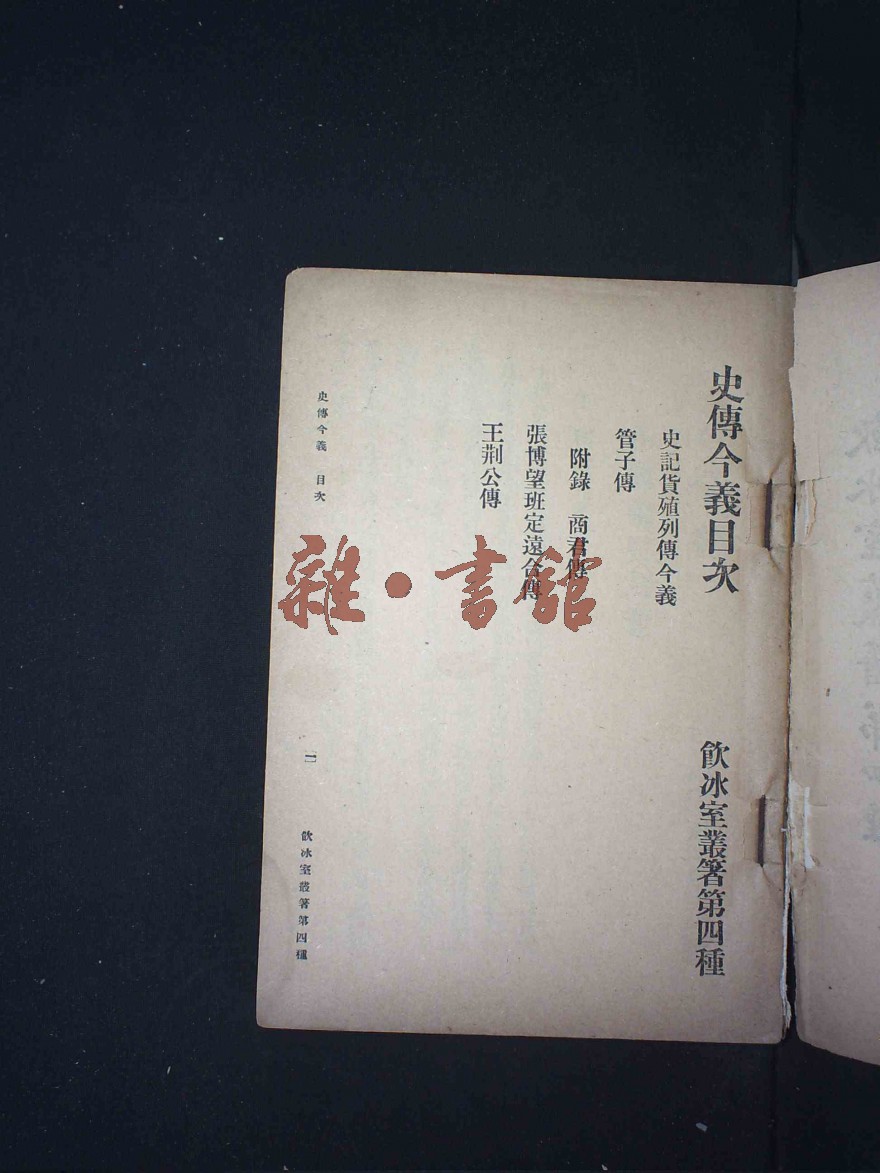 史傳今義目次
飲冰室叢箸第四種
史記貨殖列傳今義
管子傳
附錄 商君傳
張博望班定遠合傳
王荆公傳
史傳今義 目次
一
飲冰室叢箸第四種
雜·書館